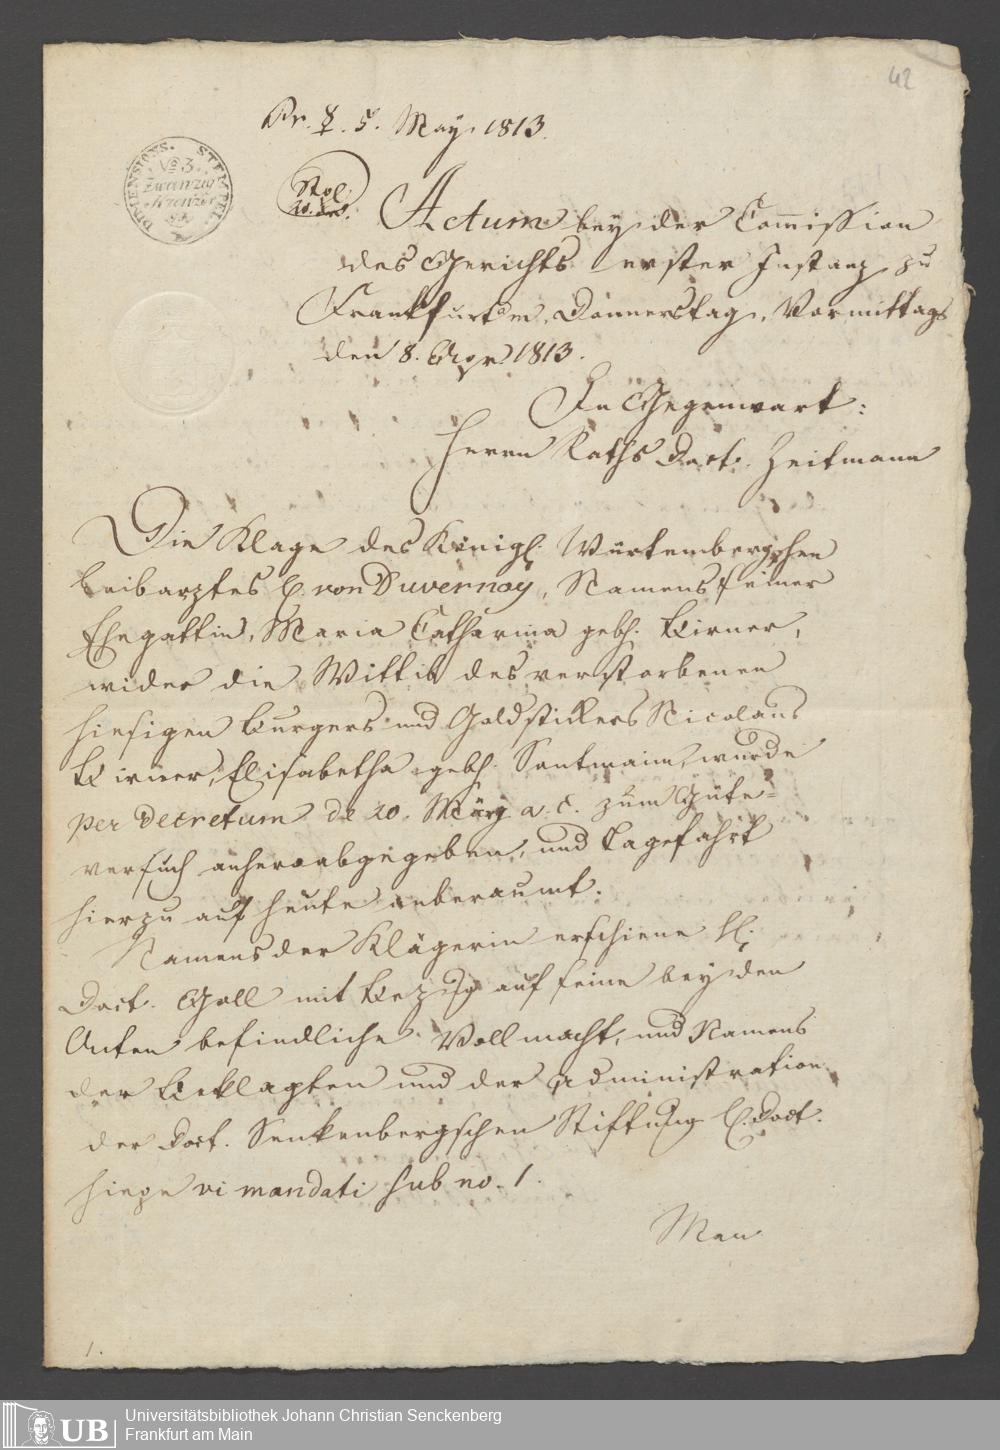 42
Pr. ☿. 5. May. 1813.
DIMENSIONS. STEMPEL.
No 3.
Zwanzig
Kreuzer
Stpl.
20. Xr.
Actum bey der Com̄ission
des Gerichts erster Instanz zu
Frankfurt Donnerstag, Vormittags
den 8. Apr. 1813.
In Gegenwart:
Herrn Raths Doct. Zeitmann
Die Klage des Königl. Würtembergschen
Leibarztes H. von Duvernoy, Namens seiner
Ehegattin, Maria Catharina gebh. Kirner,
wider die Wittib des verstorbenen
hiesigen Burgers und Goldstickers Nicolaus
Kirner, Elisabetha gebh. wurde
per Decretum de 20. März a. c. zum Güte-
versuch anhero abgegeben, und Tagefahrt
hierzu auf heute anberaumt.
Namens der Klägerin erschiene H.
Doct. Goll mit Bezug auf seine bey den
Acten befindliche Vollmacht, und Namens
der Beklagten und der Administration
der Doct. Senkenbergschen Stiftung H. Doct.
vi mandati sub no. 1.
Man
1.
UB
Universitätsbibliothek Johann Christian Senckenberg
Frankfurt am Main